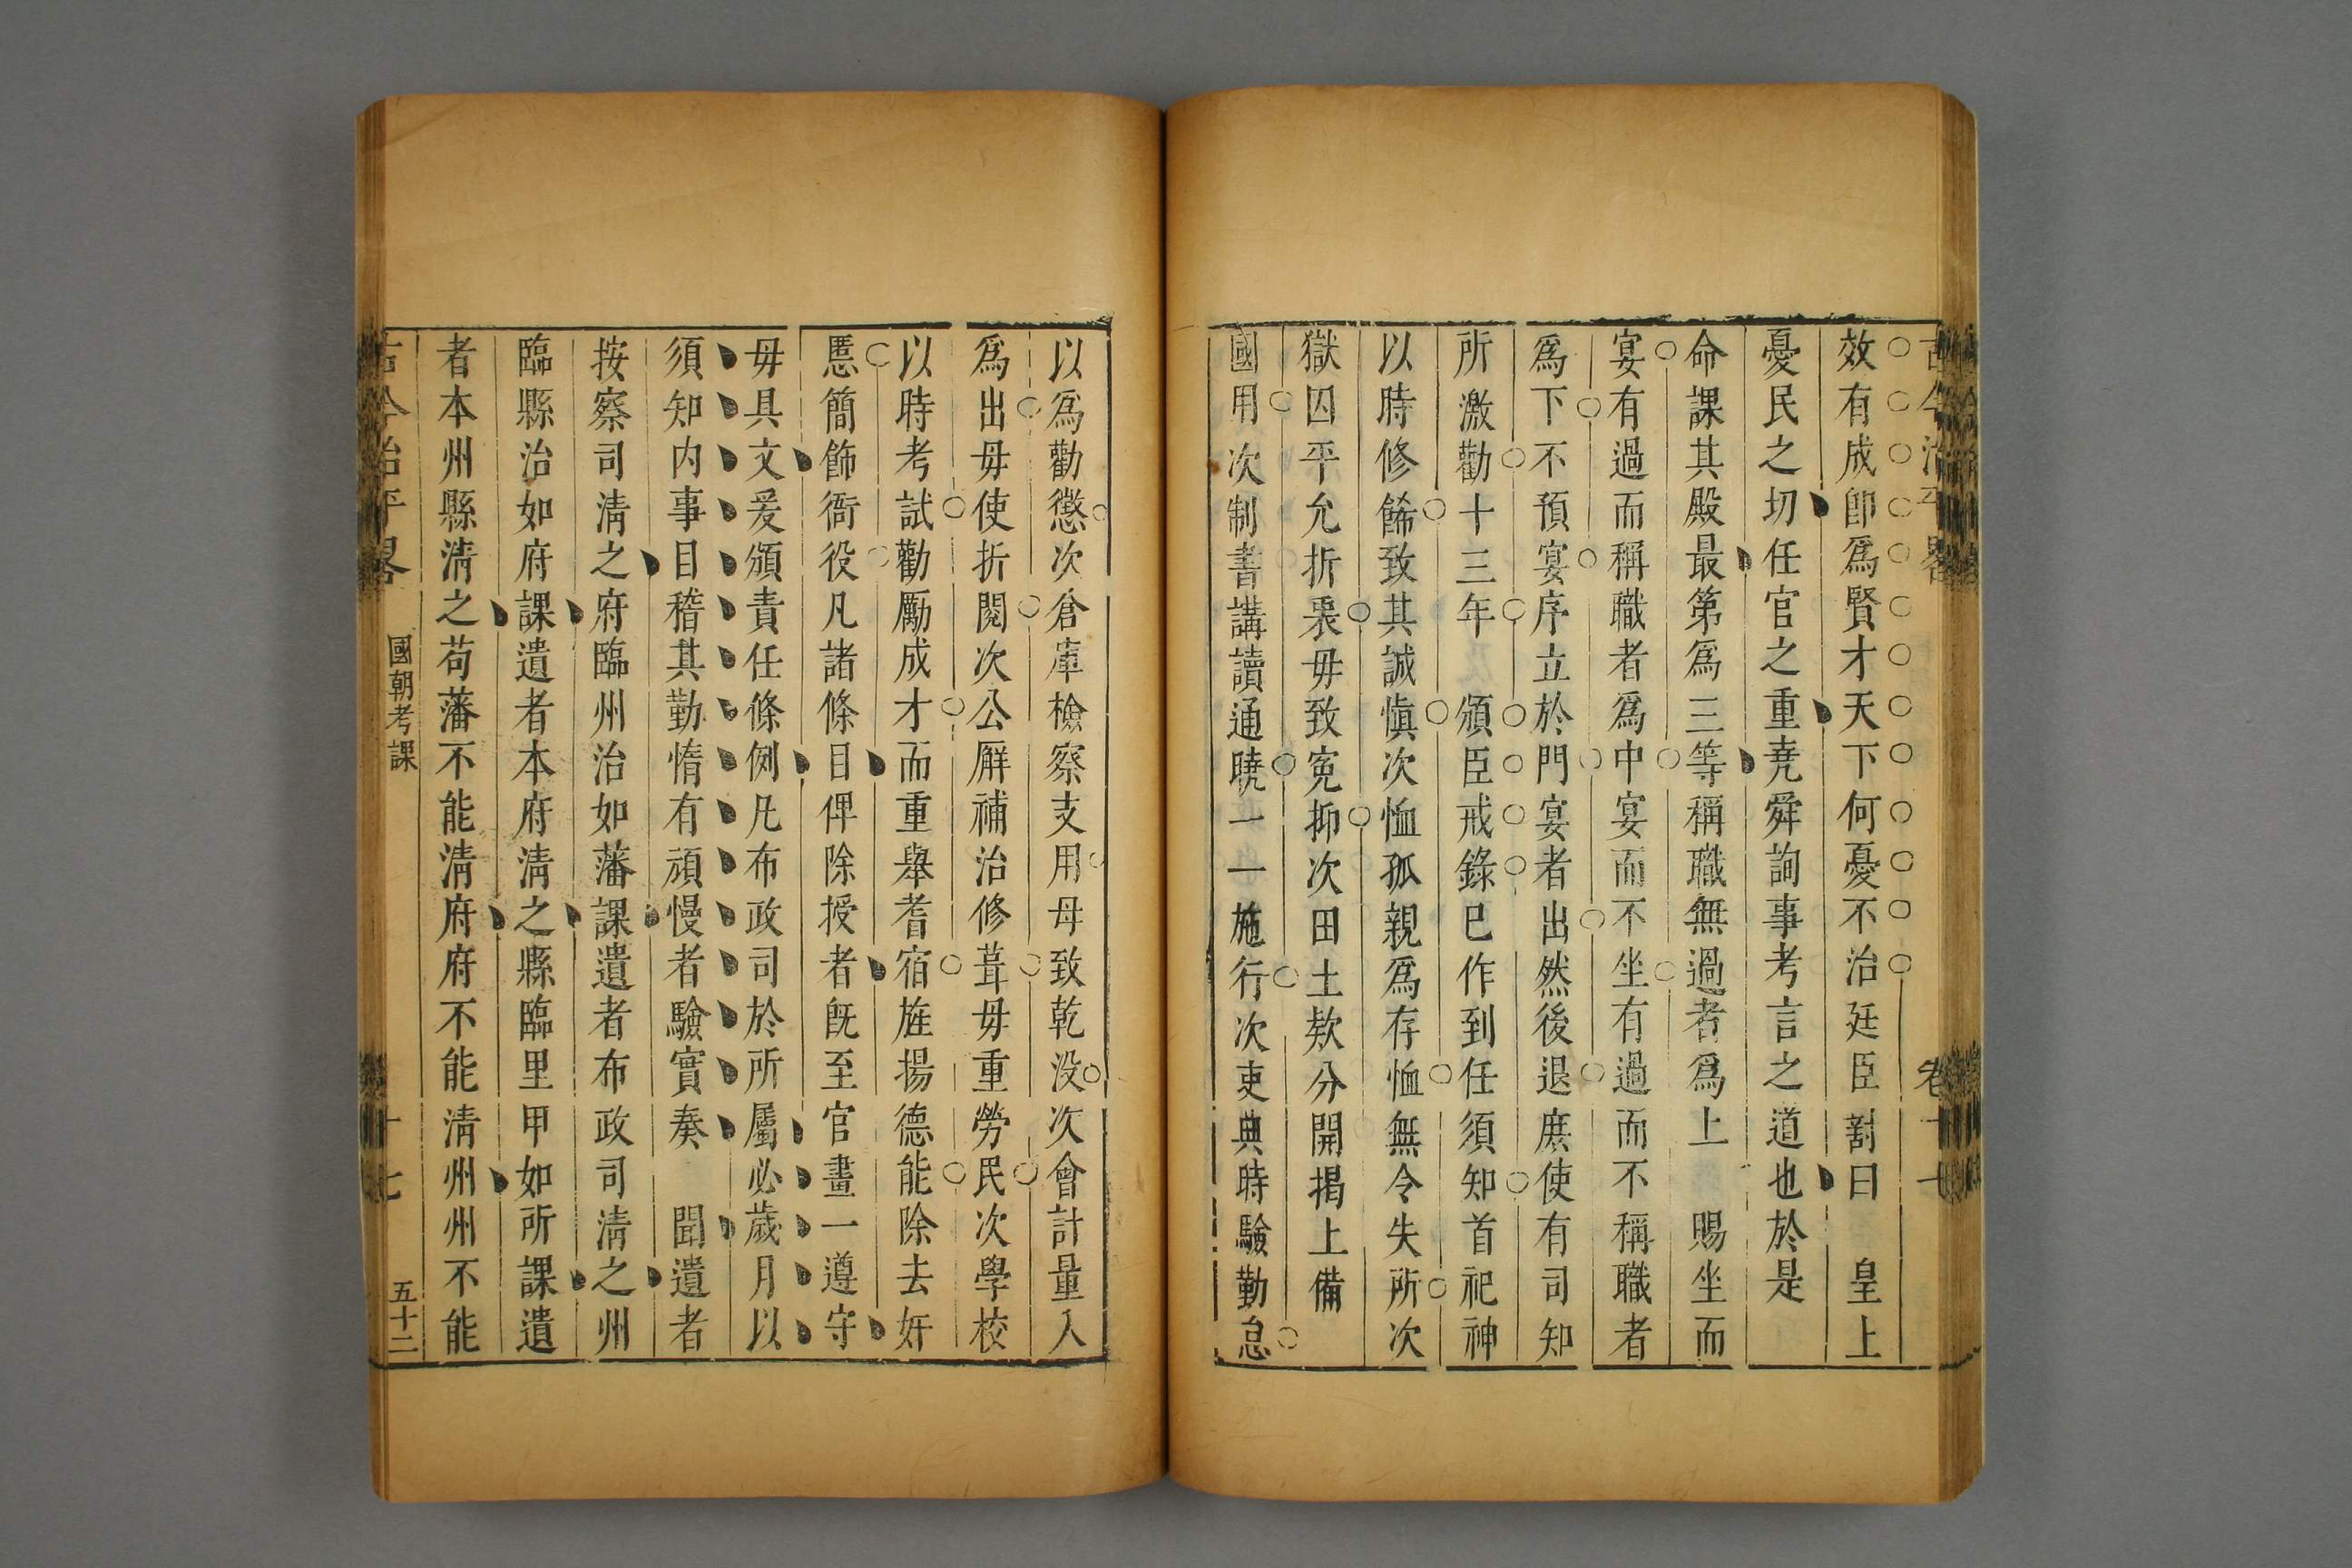 古今治平畧
卷十七
效有成卽爲賢才天下何憂不治廷臣劄曰 皇上
憂民之切任官之重堯舜詢事考言之道也於是
命課其殿最第爲三等稱職無過者爲上 賜坐而
宴有過而稱職者爲中宴而不坐有過而不稱職者
爲下不預宴序立於門宴者出然後退庶使有司知
所激勸十三年 頒臣戒錄巳作到任須知首祀神
以時修餙致其誠愼次恤孤親爲存恤無令失所次
獄囚平允折裛毋致寃抑次田土欵分開揭上備
國用次制書講讀通曉一一施行次吏典時驗勤怠
以爲勸懲次倉庫檢察支用毋致乾没次會計量入
爲出毋使折閱次公廨補治修葺毋重勞民次學校
以時考試勸勵成才而重舉耆宿旌揚德能除去奸
慝簡飾衙役凡諸條目俾除授者旣至官畫一遵守
毋具文爰頒責任條例凡布政司於所屬必歲月以
須知内事目稽其勤惰有頑慢者驗實奏 聞遣者
按察司淸之府臨州治如藩課遣者布政司淸之州
臨縣治如府課遣者本府淸之縣臨里甲如所課遣
者本州縣淸之苟藩不能淸府府不能淸州州不能
古今治平畧
國朝考課
十七
五十二